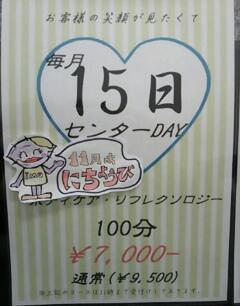 お客様の笑顔が見たくて
毎月
15日
センターDAY
11月は
にちようび
ボディケア・リフレクソロジー
100分
￥7,000-
通常(￥9,500)